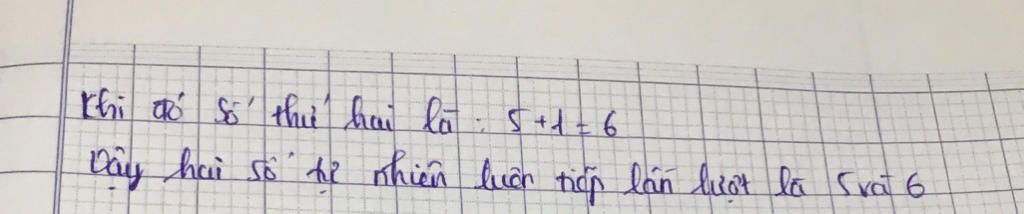 Khi đó số thứ hai là : 5 + 1 = 6
Vậy hai số tự nhiên liên tiếp lần lượt là 5 và 6